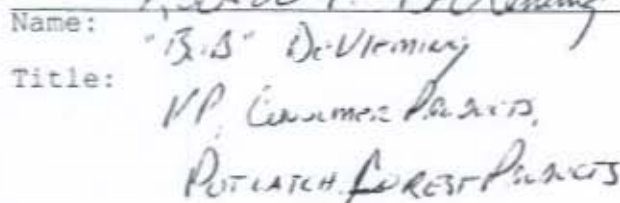 Name: "Bob" DeVleming
Title:
VP, Consumer Products,
Potlatch Forest Products